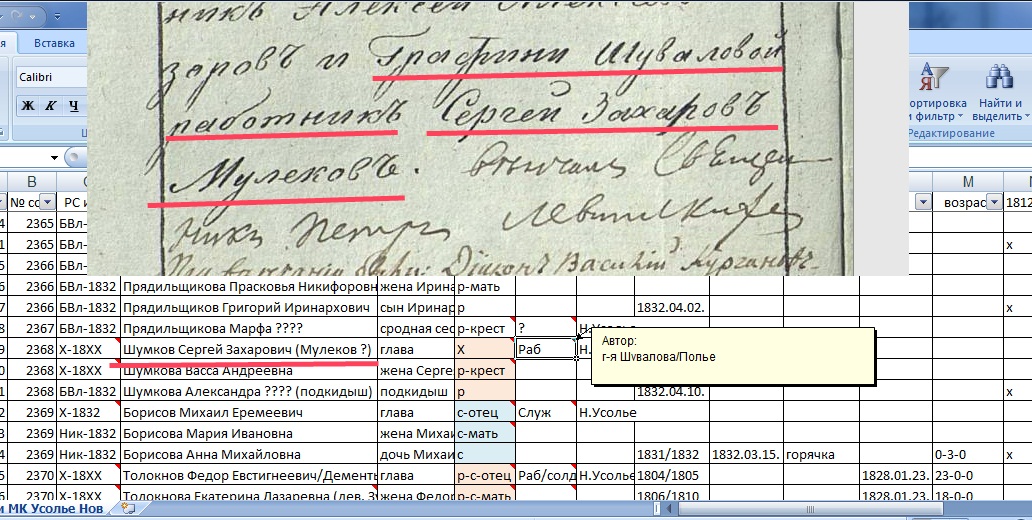 Вставка
Calibri
Ж К Ч
ортировка
и фильтр
Найти и
выделить
Редактирование
заровъ и Графини Шуваловой
работникъ Сергей Захаровъ
Мулековъ. венчалъ Священ
никъ Петръ
Дiаконъ Василiй Кургановъ
B M
№ сс РС и возрас 1812
2365 БВл-
2365 БВл- x
2366 БВл-
2366 БВл-1832 Прядильщикова Прасковья Никифоровн жена Ирина р-мать
2366 БВл-1832 Прядильщиков Григорий Иринархович сын Иринар р 1832.04.02. x
2367 БВл-1832 Прядильщикова Марфа ???? сродная сес р-крест ? Н.Усолье
2368 Х-18ХХ Шумков Сергей Захарович (Мулеков ?) глава Х Раб Н.
Автор:
г-я Шувалова/Полье
2368 Х-18ХХ Шумкова Васса Андреевна жена Серге р-крест
2368 БВл-1832 Шумкова Александра ???? (подкидыш) подкидыш р 1832.04.10. x
2369 Х-1832 Борисов Михаил Еремеевич глава с-отец Служ Н.Усолье
2369 Ник-1832 Борисова Мария Ивановна жена Михаи с-мать
2369 Ник-1832 Борисова Анна Михайловна дочь Михаи с 1831/1832 1832.03.15. горячка 0-3-0 x
2370 Х-18ХХ Толокнов Федор Евстигнеевич/Дементь глава р-с-отец Раб/солд Н.Усолье 1804/1805 1828.01.23. 23-0-0
2370 Х-18ХХ Толокнова Екатерина Лазаревна (дев. З жена Федор р-с-мать 1806/1810 1828.01.23. 18-0-0
и МК Усолье Нов